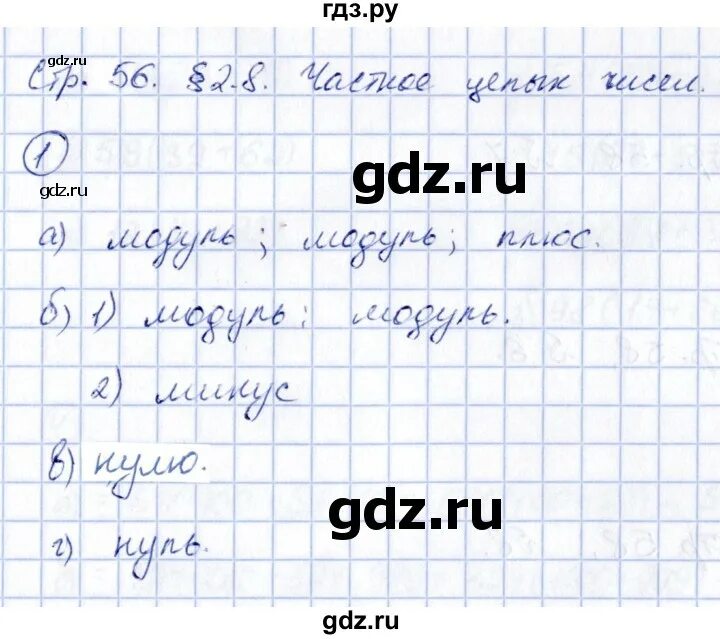 гдз.ру
gdz.ru
gdz.ru
gdz.ru
Стр. 56. § 2.8. Частное целых чисел.
1
gdz.ru
gdz.ru
а) модуль; модуль; плюс.
б) 1) модуль; модуль.
2) минус
в) нулю.
gdz.ru
г) нуль.